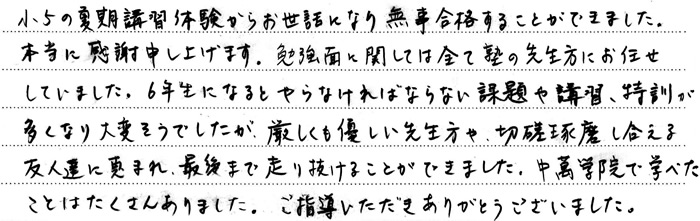 小5の夏期講習体験からお世話になり無事合格することができました。
本当に感謝申し上げます。勉強面に関しては全て塾の先生方にお任せ
していました。6年生になるとやらなければならない課題や講習、特訓が
多くなり大変そうでしたが、厳しくも優しい先生方や、切磋琢磨し合える
友人達に恵まれ、最後まで走り抜けることができました。中萬学院で学べた
ことはたくさんありました。ご指導いただきありがとうございました。